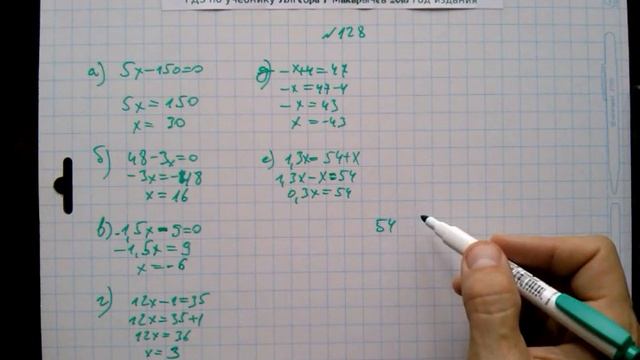 ГДЗ по учебнику Алгебра 7 Макарычев 2018 год издания
№128
а) 5x-150=0
5x=150
x=30
б) 48-3x=0
-3x=-48
x=16
в) -1,5x-9=0
-1,5x=9
x=-6
г) 12x-1=35
12x=35+1
12x=36
x=3
д) -x+4=47
-x=47-4
-x=43
x=-43
е) 1,3x=54+x
1,3x-x=54
0,3x=54
54